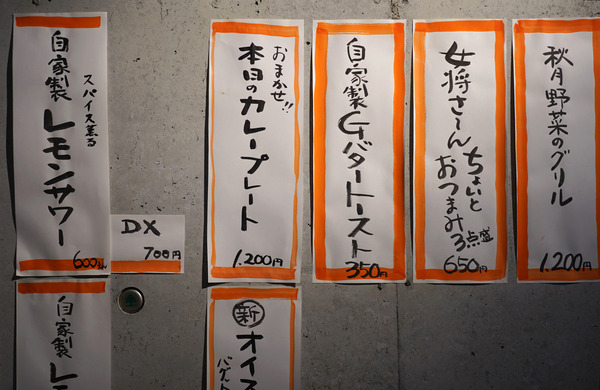 秋野菜のグリル
1.200円
女将さ〜ん
ちょいと
おつまみ
3点盛
650円
自家製Gバタートースト
350円
おまかせ!!
本日のカレープレート
1.200円
スパイス薫る
自家製レモンサワー
600円
DX
700円
新 オイス
バゲ
自家製レ